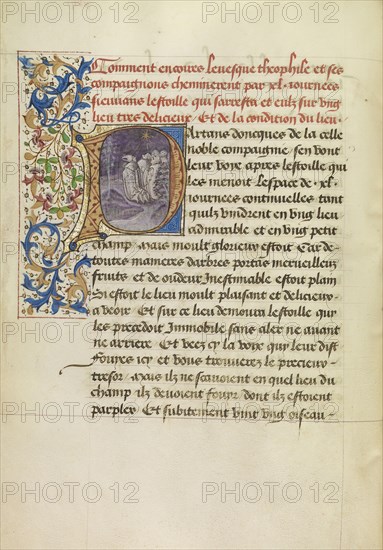 Comment encores leuesque theophile et ses
compaignons cheminerent par xl. Iournees
sieuuans lestoille qui sarresta et eulz sur vng
lieu tres delicieux. Et de la condition du lieu.
Partans doncques de la celle
noble compaignie sen vont
leur voye apres lestoille qui
les menoit lespace de .xl.
Iournees continuelles tant
quilz vindrent en vng lieu
admirable et en vng petit
champ. Mais moult glorieux estoit Car de
toutes manieres darbres portans merueilleux
fruits et de oudeur Inestimable estoit plain
Si estoit le lieu moult plaisant et delicieux
a veoir. Et sur ce lieu demoura lestoille qui
les precedoit Immobile sans aler ne auant
ne arriere. Et veez cy la voix qui leur dist
Fouyes icy et vous trouuerez le precieux
tresor. Mais ilz ne scauoient en quel lieu du
champ ilz deuoient fouyr dont ilz estoient
parplex Et subitement vint vng oiseau
PHOTO 12
PHOTO 12
PHOTO 12
PHOTO 12
PHOTO 12
PHOTO 12
PHOTO 12
PHOTO 12
PHOTO 12